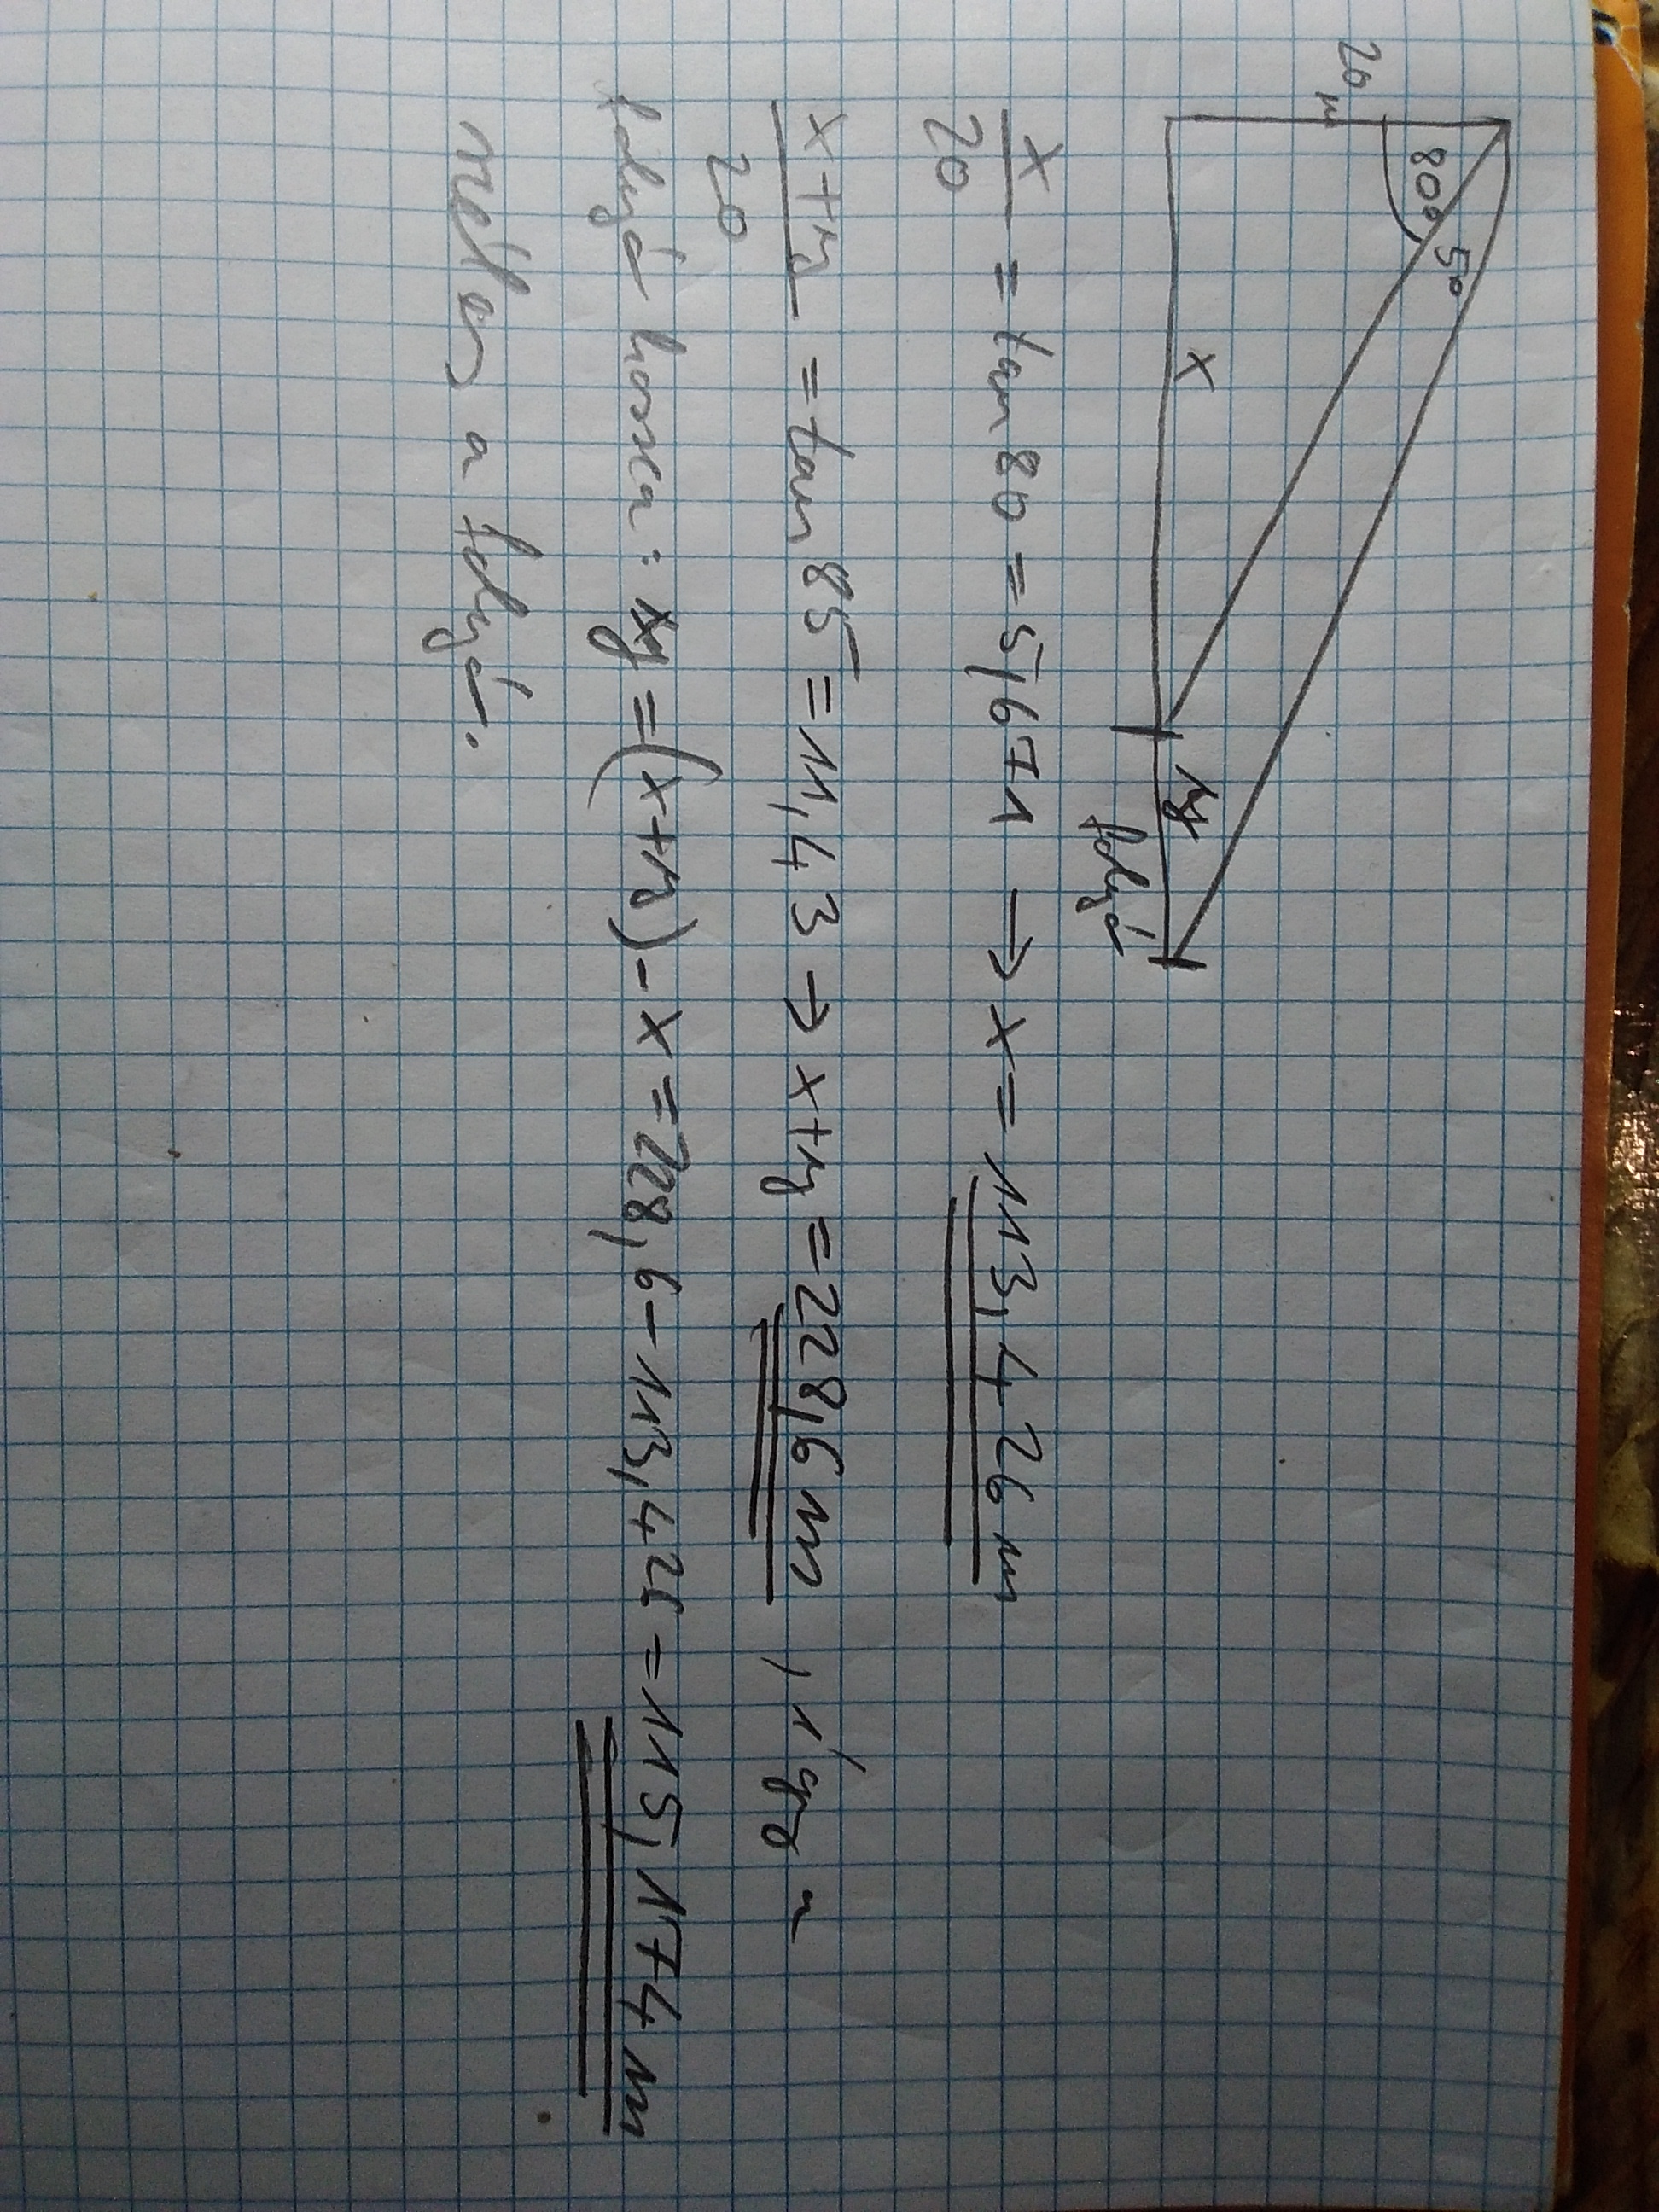 20 m
80° 5°
x y
folyó
x/20 = tan 80 = 5,671 → x = 113,426 m
x+y/20 = tan 85 = 11,43 → x+y = 228,6 m, így a
folyó hossza: y = (x+y) - x = 228,6 - 113,425 = 115,174 m
széles a folyó.